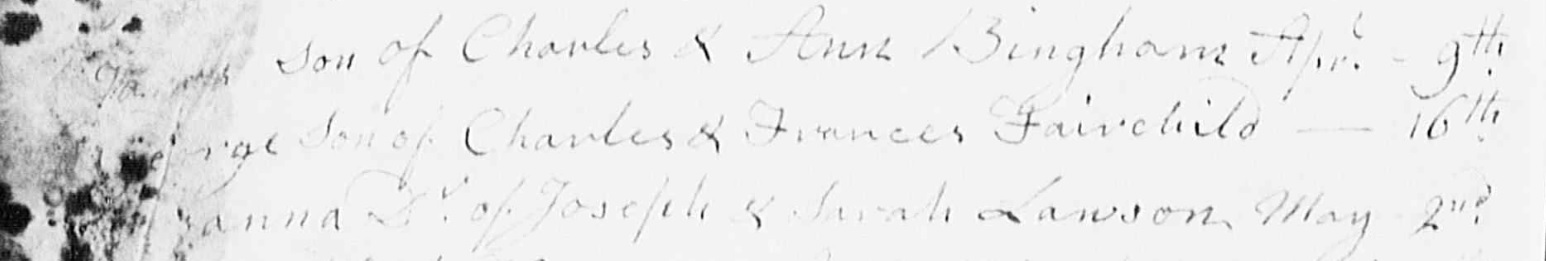 James son of Charles & Ann Bingham Apr. - 9th
George Son of Charles & Frances Fairchild — 16th
Dr. of Joseph & Sarah Lawson May 2nd